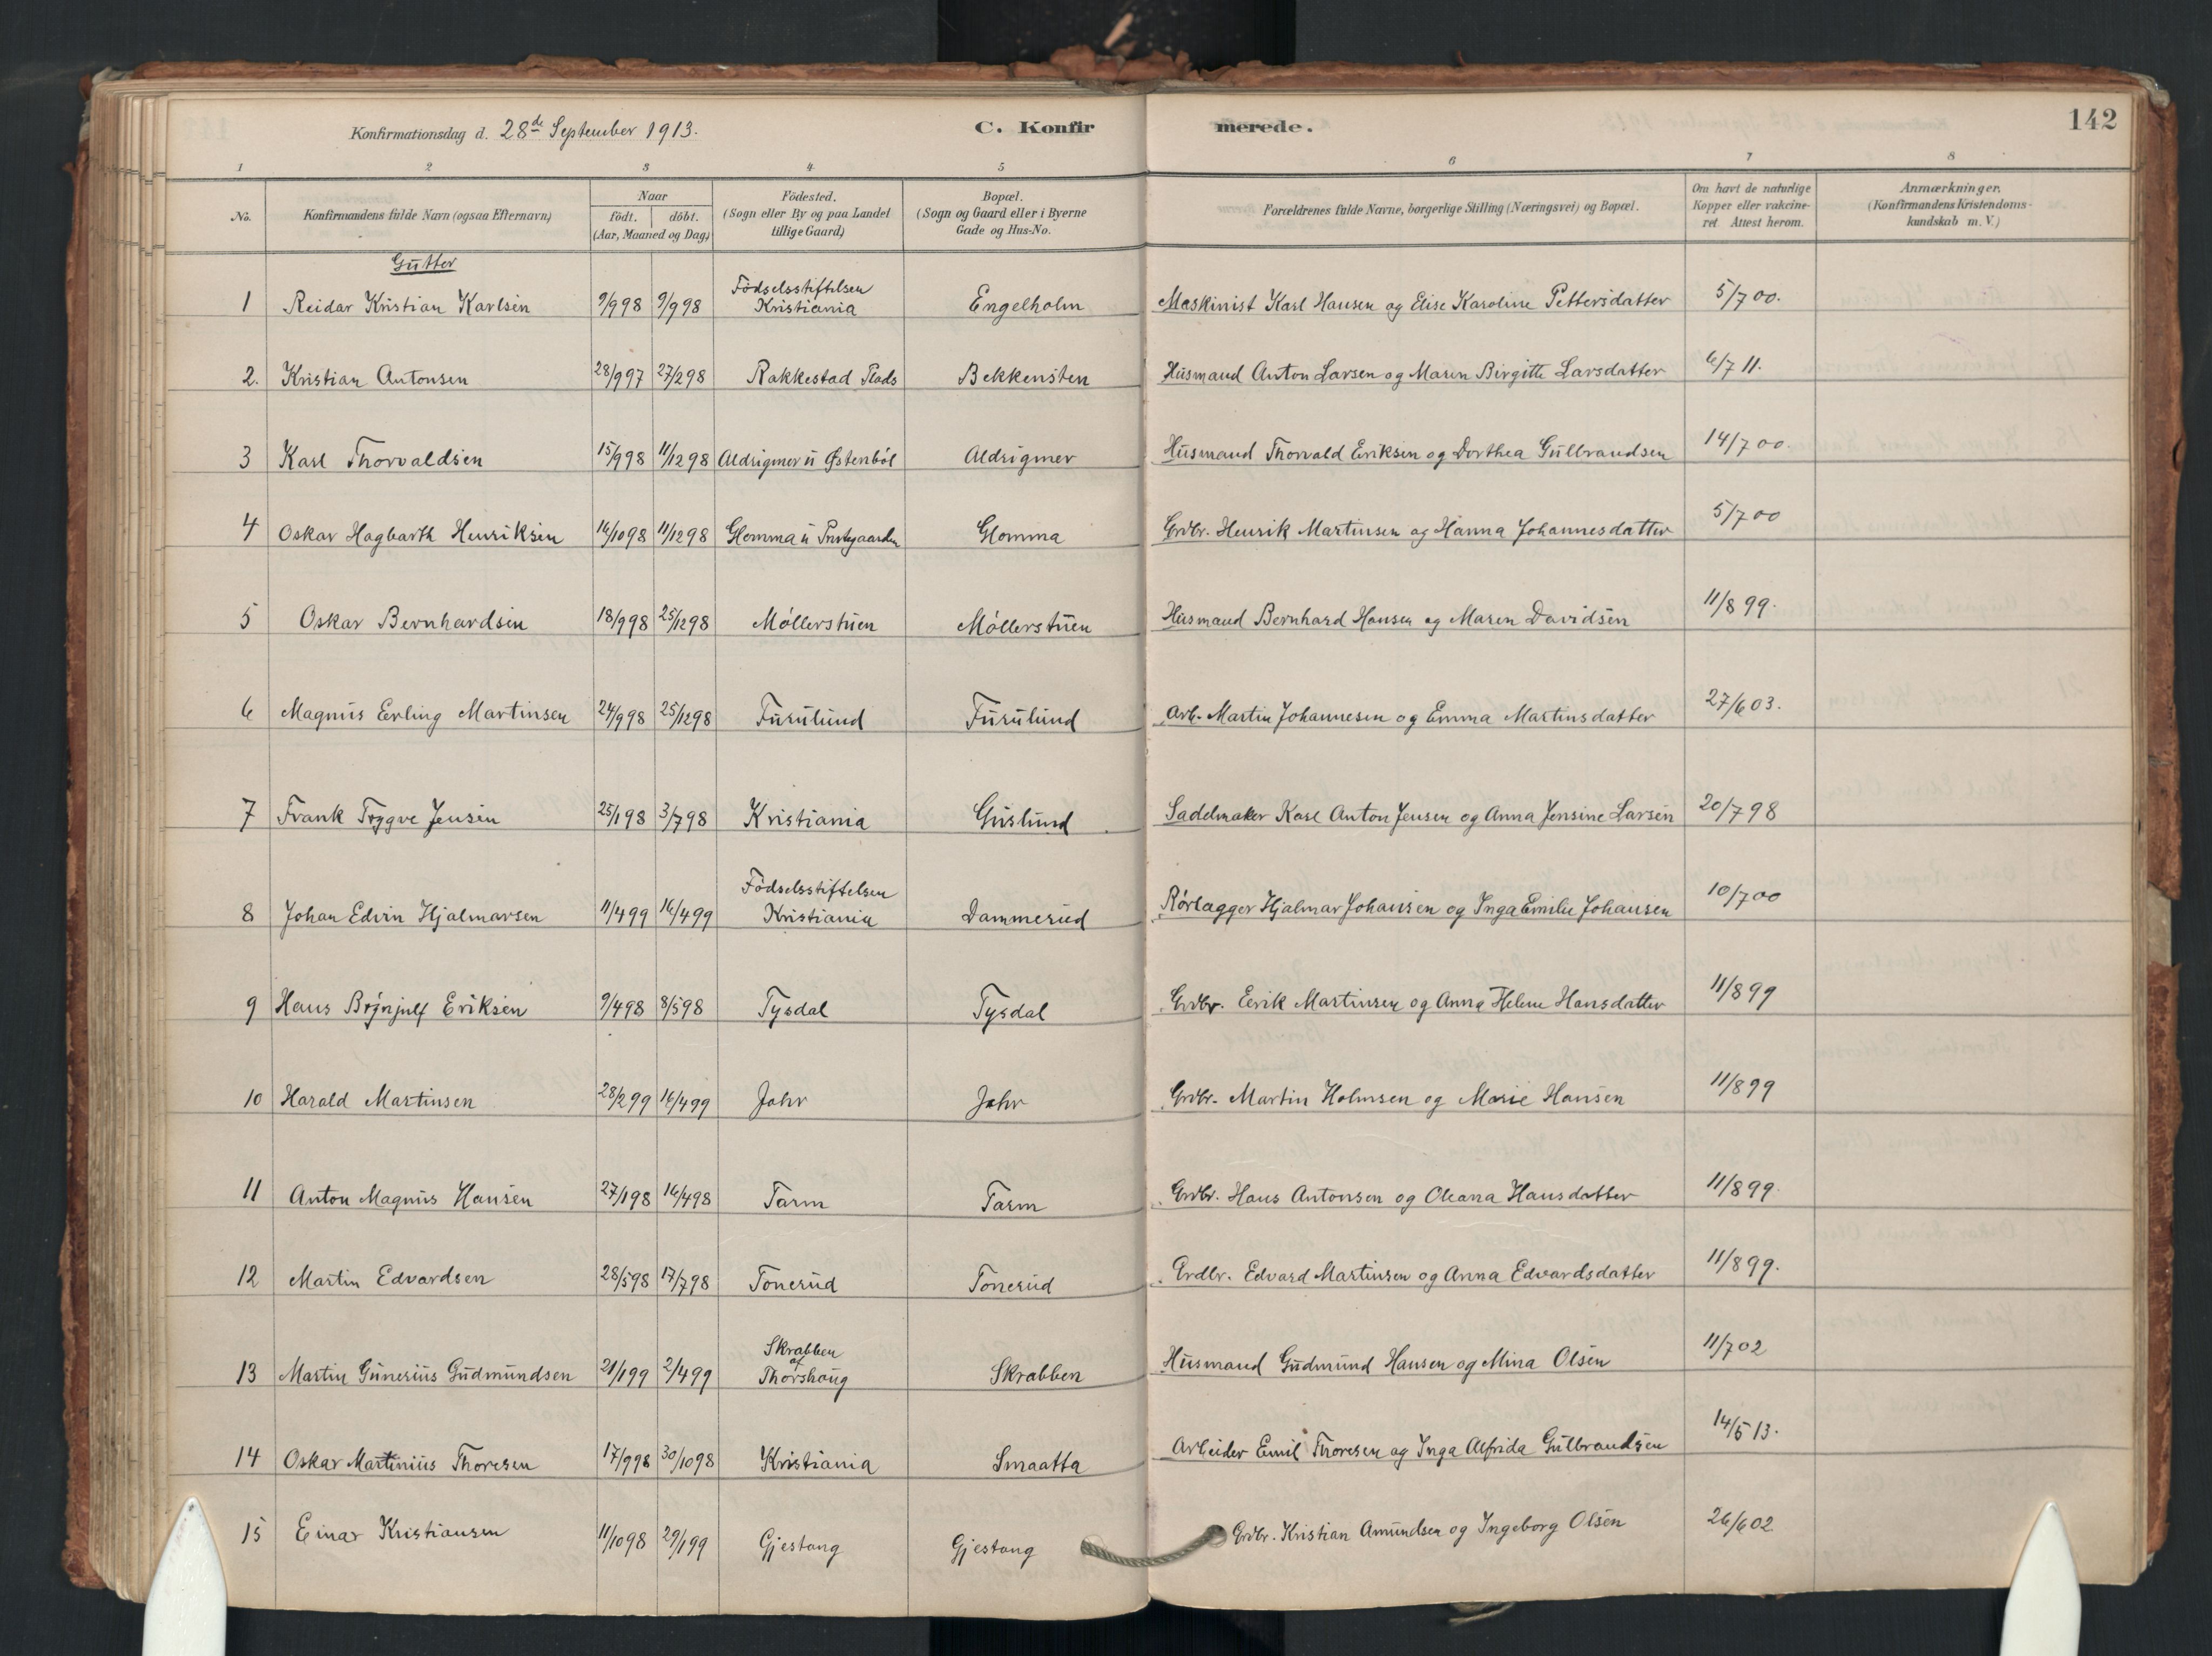 Konfirmationsdag d. 28de September 1913. C. Konfirmerede. 142
1 2 3 4 5 6 7 8
No. Konfirmandens fulde Navn (ogsaa Efternavn) Naar født. døbt. (Aar, Maaned og Dag) Fødested. (Sogn eller By og paa Landet tillige Gaard) Bopæl. (Sogn og Gaard eller i Byerne Gade og Hus-No. Forældrenes fulde Navne, borgerlige Stilling (Næringsvei) og Bopæl. Om havt de naturlige Kopper eller vakcineret. Attest herom. Anmærkninger. (Konfirmandens Kristendomskundskab m. V.)
Gutter
1 Reidar Kristian Karlsen 9/998 9/998 Fødselsstiftelsen Kristiania Engelholm Maskinist Karl Hansen og Elise Karoline Pettersdatter 5/700.
2. Kristian Antonsen 28/997 27/298 Rakkestad Plads Bekkensten Husmand Anton Larsen og Maren Birgitte Larsdatter 6/711.
3 Karl Thorvaldsen 15/998 11/1298 Aldrigmer u Østenbøl Aldrigmer Husmand Thorvald Eriksen og Dorthea Gulbrandsen 14/700.
4 Oskar Hagbarth Henriksen 16/1098 11/1298 Glomma u Prestegaarden Glomma Grdbr. Henrik Martinsen og Hanna Johannesdatter 5/700
5 Oskar Bernhardsen 18/998 25/1298 Møllerstuen Møllerstuen Husmand Bernhard Hansen og Maren Davidsen 11/899.
6 Magnus Erling Martinsen 24/998 25/1298 Furulund Furulund Arb. Martin Johannesen og Emma Martinsdatter 27/603.
7 Frank Trygve Jensen 25/198 3/798 Kristiania Guslund Sadelmaker Karl Anton Jensen og Anna Jensine Larsen 20/798
8 Johan Edvin Hjalmarsen 11/499 16/499 Fødselsstiftelsen Kristiania Dammerud Rørlægger Hjalmar Johansen og Inga Emilie Johansen 10/700
9 Hans Brynjulf Eriksen 9/498 8/598 Tysdal Tysdal Grdbr. Eerik Martinsen og Anna Helene Hansdatter 11/899
10 Harald Martinsen 28/299 16/499 Jahr Jahr Grdbr. Martin Holmsen og Marie Hansen 11/899
11 Anton Magnus Hansen 27/198 16/498 Tarm Tarm Grdbr. Hans Antonsen og Oleana Hansdatter 11/899.
12 Martin Edvardsen 28/598 17/798 Tonerud Tonerud Grdbr. Edvard Martinsen og Anna Edvardsdatter 11/899.
13 Martin Gunerius Gudmundsen 21/199 2/499 Skrabben af Thorshaug Skrabben Husmand Gudmund Hansen og Mina Olsen 11/702
14 Oskar Martinius Thoresen 17/998 30/1098 Kristiania Smaatta Arbeider Emil Thoresen og Inga Alfrida Gulbrandsen 14/513.
15 Einar Kristiansen 11/1098 29/199 Gjestang Gjestang Grdbr. Kristian Amundsen og Ingeborg Olsen 26/602